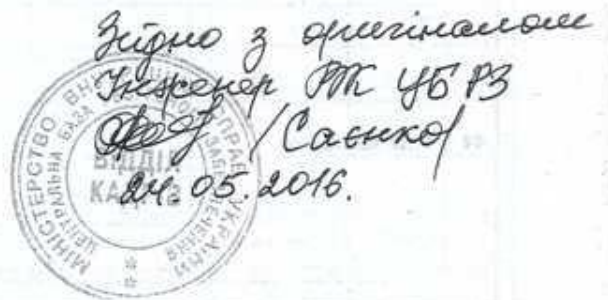 Згідно з оригіналом
Інженер ВК ЦБ РЗ
/Саєнко/
24.05.2016.
МІНІСТЕРСТВО ВНУТРІШНІХ СПРАВ УКРАЇНИ
ЦЕНТРАЛЬНА БАЗА ЗАБЕЗПЕЧЕННЯ
ВІДДІЛ
КАДРІВ